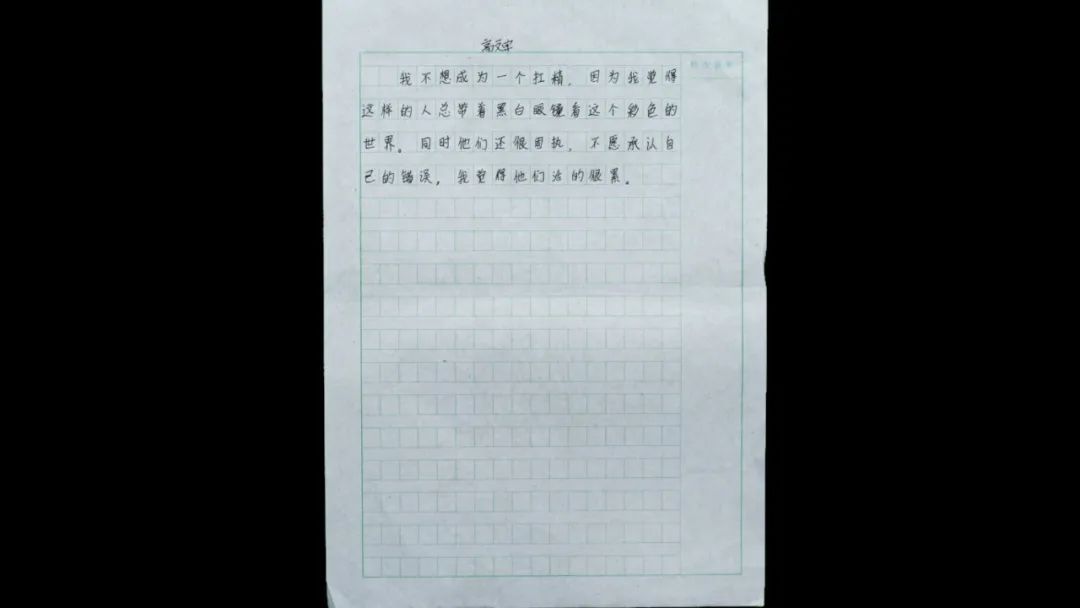 高文宇
我不想成为一个扛精，因为我觉得
这样的人总带着黑白眼镜看这个彩色的
世界。同时他们还很固执，不愿承认自
己的错误，我觉得他们活的很累。